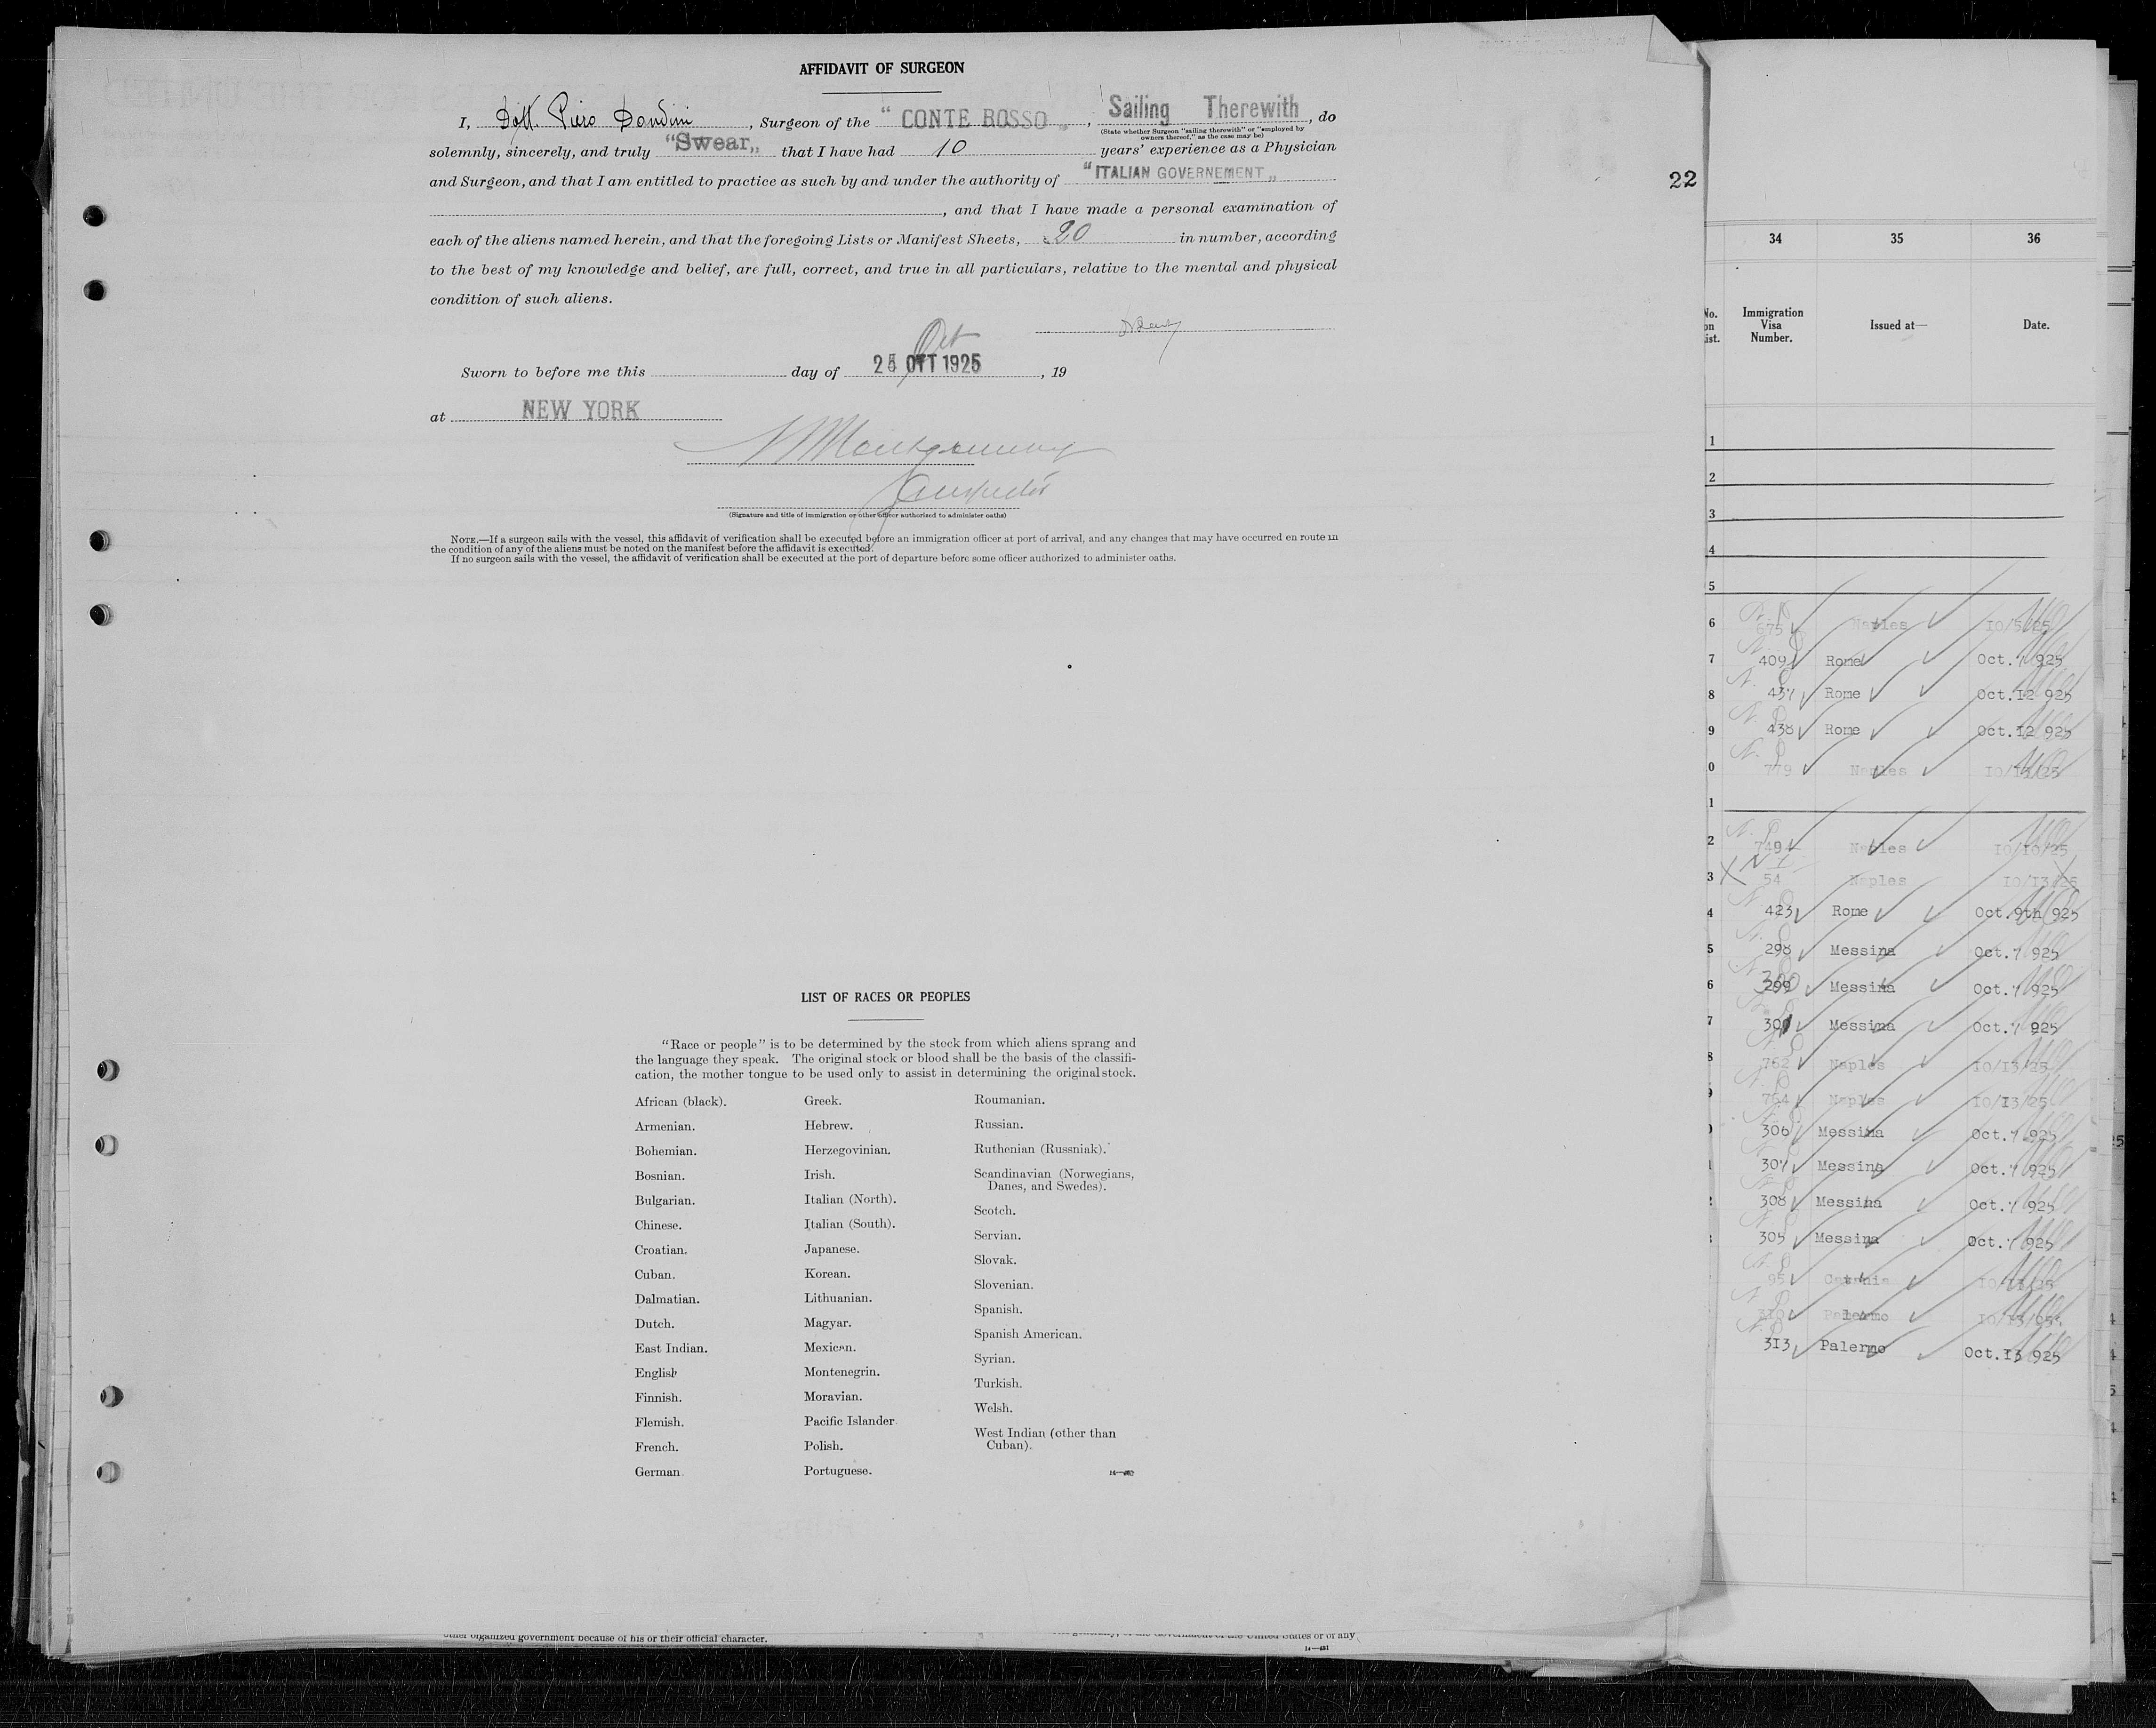 AFFIDAVIT OF SURGEON
I, Dott. Piero Dondini, Surgeon of the "CONTE ROSSO", Sailing Therewith, do
(State whether Surgeon "sailing therewith" or "employed by
owners thereof," as the case may be)
solemnly, sincerely, and truly "Swear" that I have had 10 years' experience as a Physician
and Surgeon, and that I am entitled to practice as such by and under the authority of "ITALIAN GOVERNEMENT"
, and that I have made a personal examination of
each of the aliens named herein, and that the foregoing Lists or Manifest Sheets, 20 in number, according
to the best of my knowledge and belief, are full, correct, and true in all particulars, relative to the mental and physical
condition of such aliens.
Oct
Sworn to before me this day of 25 OTT 1925, 19
at NEW YORK
Montgomery
Inspector
(Signature and title of immigration or other officer authorized to administer oaths)
NOTE.—If a surgeon sails with the vessel, this affidavit of verification shall be executed before an immigration officer at port of arrival, and any changes that may have occurred en route in
the condition of any of the aliens must be noted on the manifest before the affidavit is executed.
If no surgeon sails with the vessel, the affidavit of verification shall be executed at the port of departure before some officer authorized to administer oaths.
LIST OF RACES OR PEOPLES
"Race or people" is to be determined by the stock from which aliens sprang and
the language they speak. The original stock or blood shall be the basis of the classifi-
cation, the mother tongue to be used only to assist in determining the original stock.
African (black).
Armenian.
Bohemian.
Bosnian.
Bulgarian.
Chinese.
Croatian.
Cuban.
Dalmatian.
Dutch.
East Indian.
English
Finnish.
Flemish.
French.
German.
Greek.
Hebrew.
Herzegovinian.
Irish.
Italian (North).
Italian (South).
Japanese.
Korean.
Lithuanian.
Magyar.
Mexican.
Montenegrin.
Moravian.
Pacific Islander.
Polish.
Portuguese.
Roumanian.
Russian.
Ruthenian (Russniak).
Scandinavian (Norwegians,
Danes, and Swedes).
Scotch.
Servian.
Slovak.
Slovenian.
Spanish.
Spanish American.
Syrian.
Turkish.
Welsh.
West Indian (other than
Cuban).
other organized government because of his or their official character.
22
34 35 36
Immigration
Visa
Number.
Issued at—
Date.
1
2
3
4
5
6 675 Naples 10/5/25
7 409 Rome Oct.7 925
8 437 Rome Oct.12 925
9 438 Rome Oct.12 925
0 779 Naples 10/13/25
1
2 749 Naples 10/10/25
3 54 Naples 10/13/25
4 423 Rome Oct.9th 925
5 298 Messina Oct.7 925
6 300 Messina Oct.7 925
7 301 Messina Oct.7 925
8 762 Naples 10/13/25
9 764 Naples 10/13/25
306 Messina Oct.7 925
307 Messina Oct.7 925
308 Messina Oct.7 925
305 Messina Oct.7 925
95 Catania 10/13/25
310 Palermo 10/13/25
313 Palermo Oct.13 925